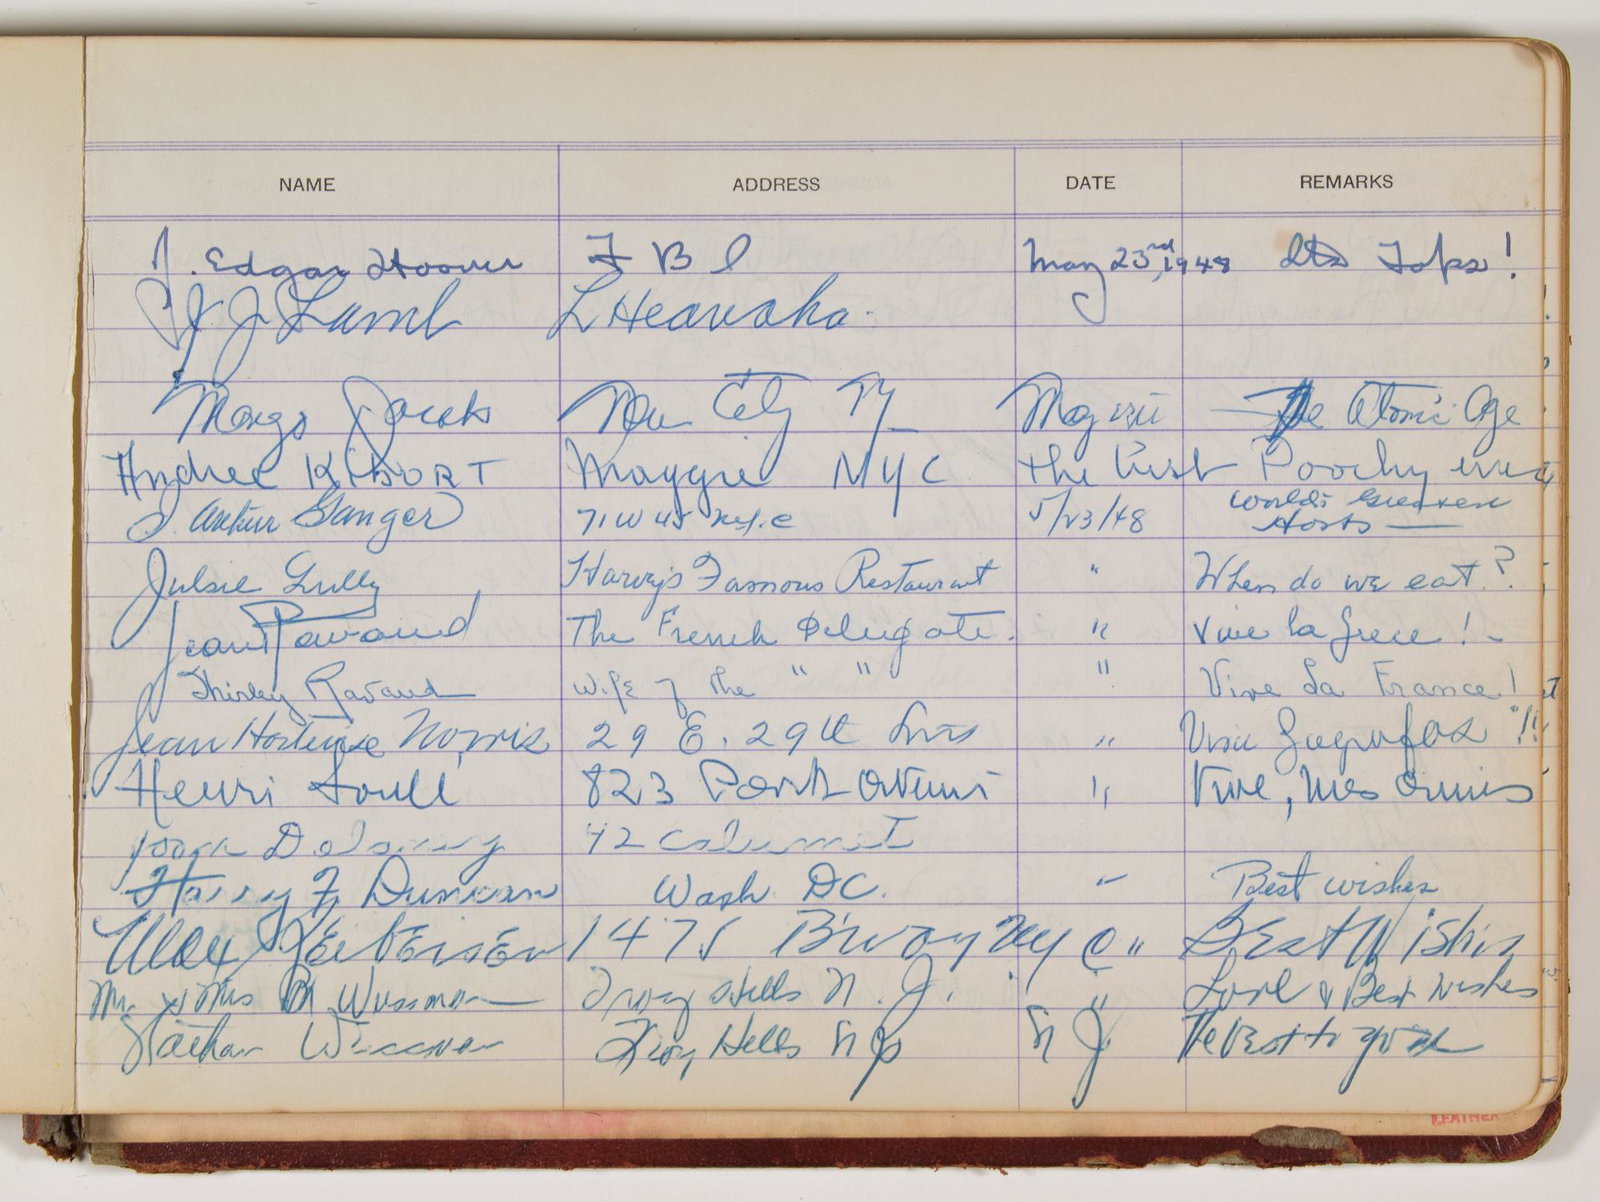 NAME ADDRESS DATE REMARKS
J. Edgar Hoover F B I May 23rd, 1948 Its Tops!
J J Lamb L Heavaha.
Margo New City NY May The Atomic Age
Andree KiBORT Maggie NYC the first Poochy
J. Arthur Ganger 71 W 45 N.Y.C 5/23/48 World's Greatest
Hosts
Julsie Gully Harvey's Famous Restaurant " When do we eat?
Jean Ravaud The French Delegate. " Vive la Grece!
Shirley Ravaud Wife of the " " " Vive La France!
Jean Hortense Norris 29 E. 29th " !!
Henri Soulé 823 Park Avenue " Vive, mes Amis
Delaney 42 Calumet
Harry F Duncan Wash. DC. " Best wishes
Max 1475 B'way NYC " BEst Wishes
Mr. & Mrs Troy Hills N. J. " Love & Best Wishes
Nathan Troy Hills NJ N J The Best to you
LEATHER